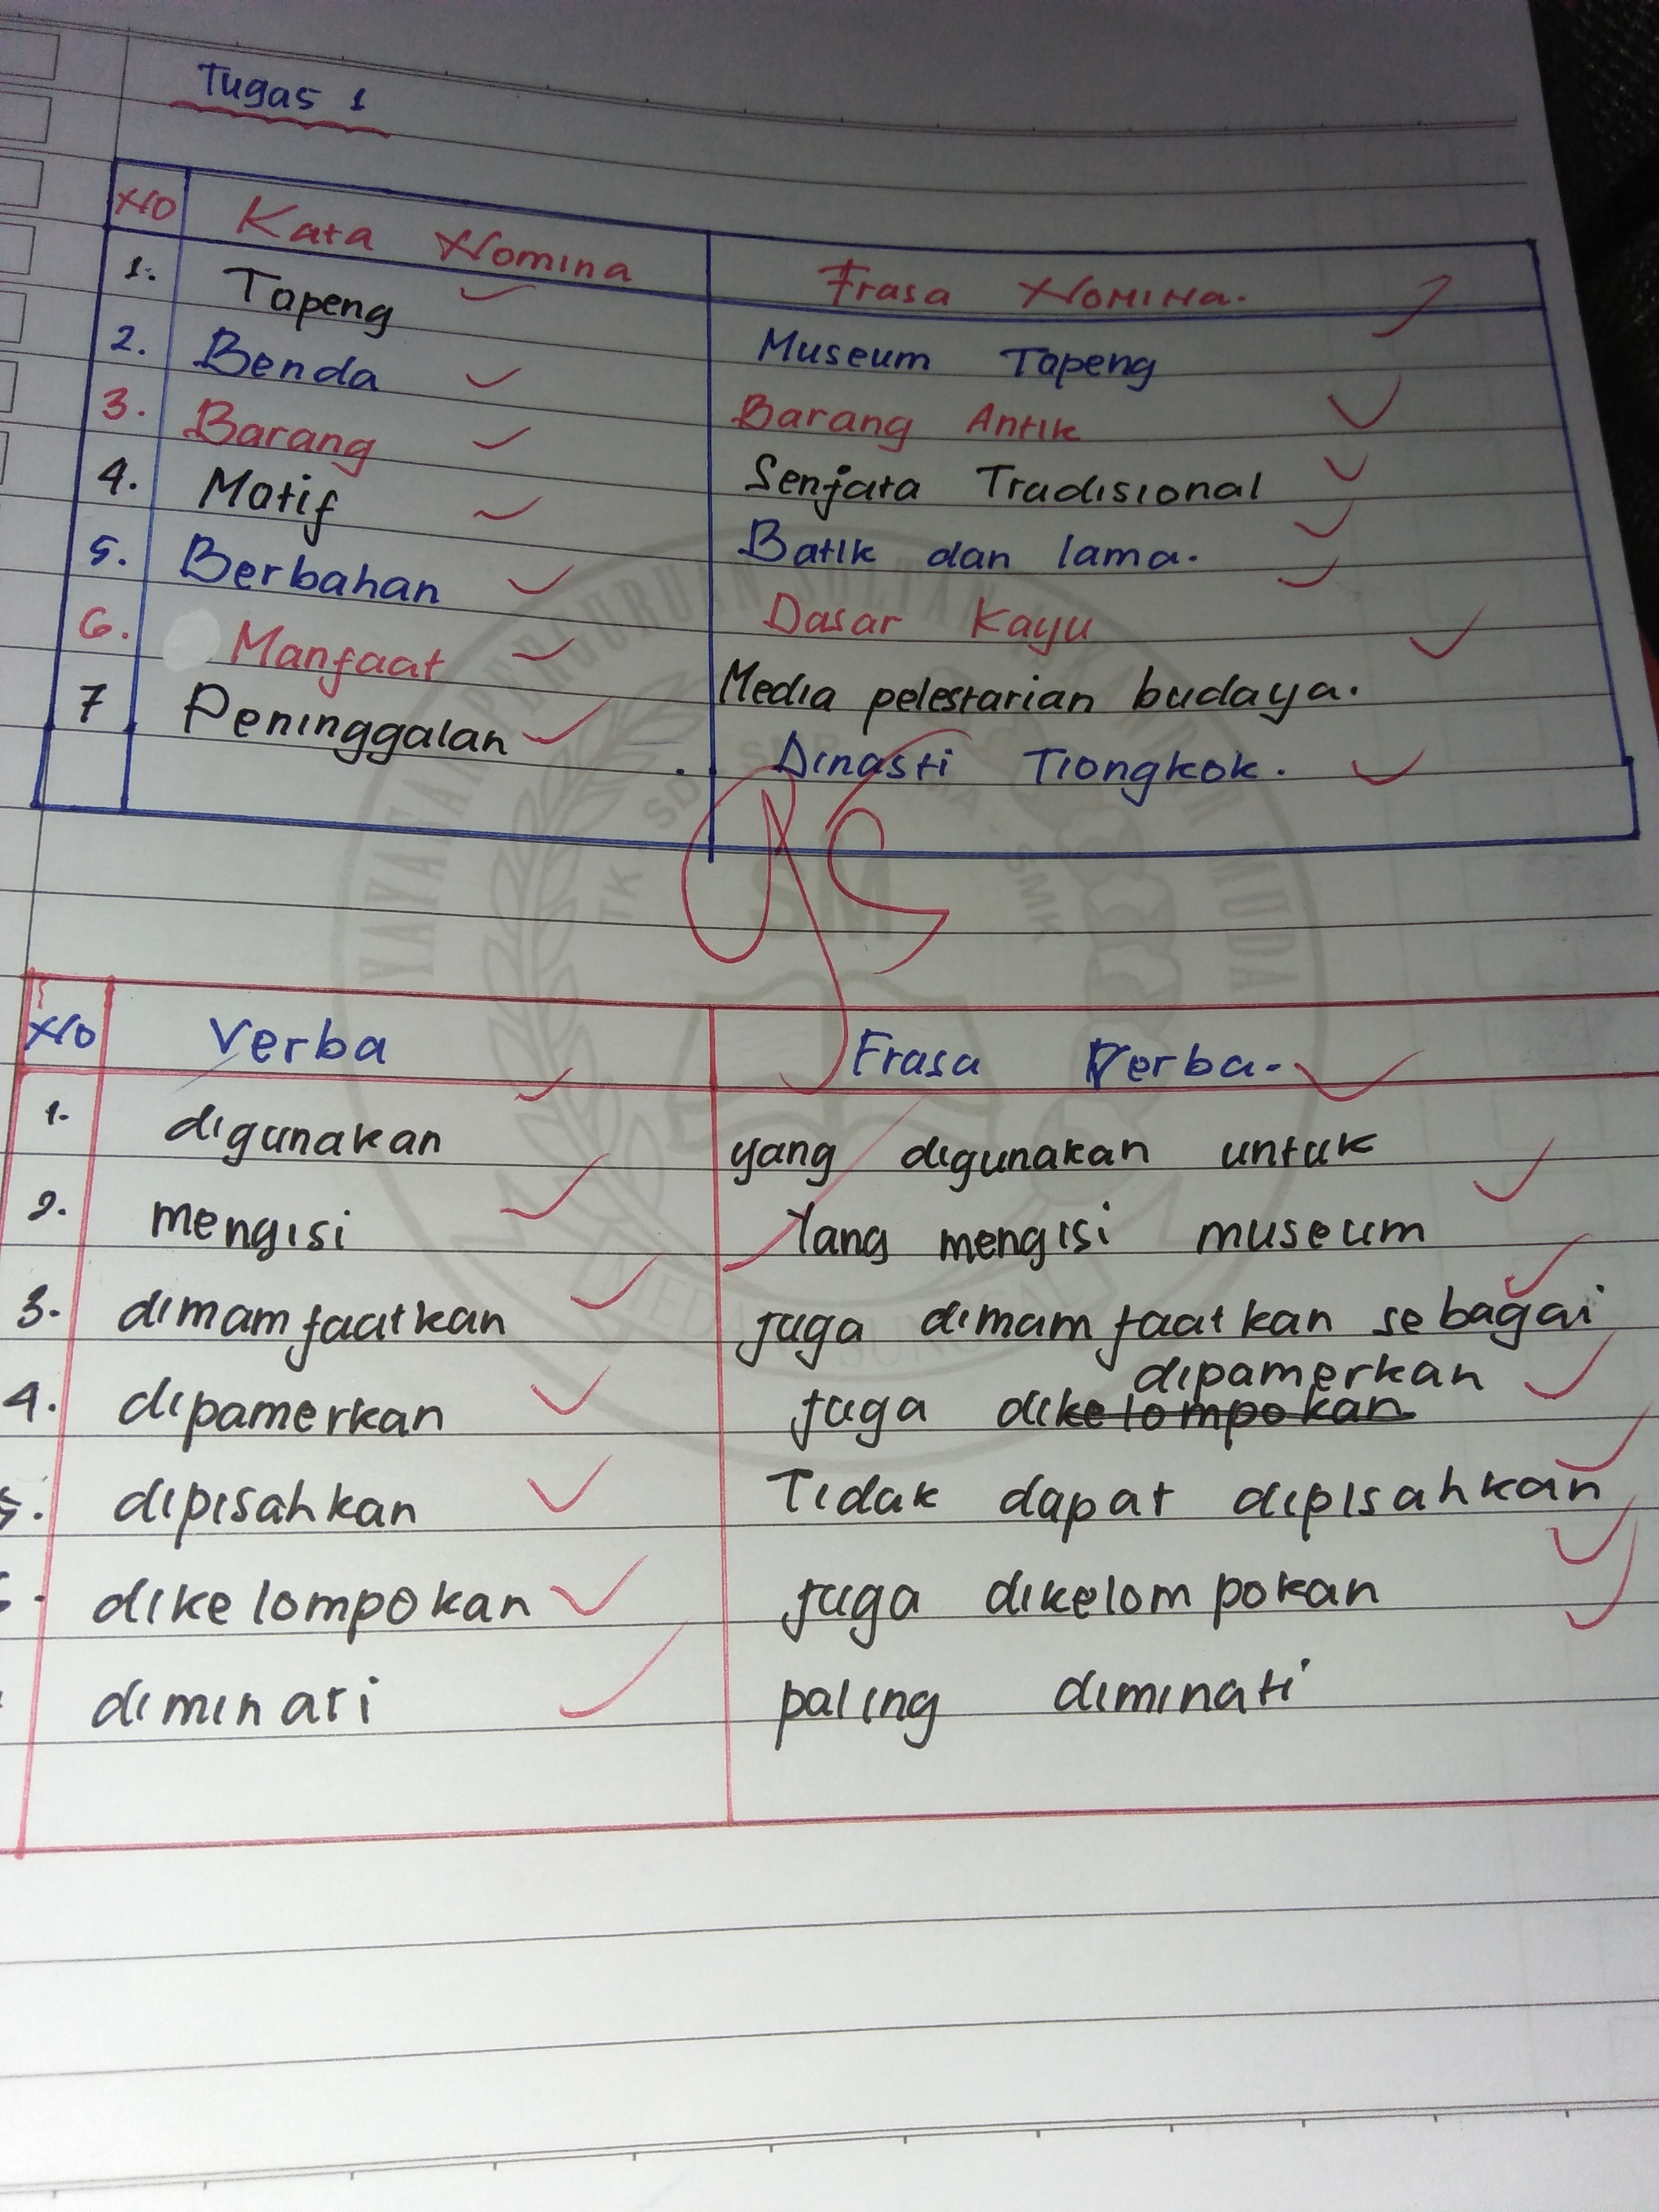 Tugas 1
NO Kata Nomina Frasa Nomina.
1. Topeng Museum Topeng
2. Benda Barang Antik
3. Barang Senjata Tradisional
4. Motif Batik dan lama.
5. Berbahan Dasar Kayu
6. Manfaat Media pelestarian budaya.
7 Peninggalan Dinasti Tiongkok.
95
No Verba Frasa Verba.
1. digunakan yang digunakan untuk
2. mengisi Yang mengisi museum
3. dimamfaatkan juga dimamfaatkan sebagai
4. dipamerkan juga dikelompokan dipamerkan
5. dipisahkan Tidak dapat dipisahkan
dikelompokan juga dikelompokan
diminati paling diminati
YAYASAN PERGURUAN SULTAN ISKANDAR MUDA
SM
SMK
TK
SD